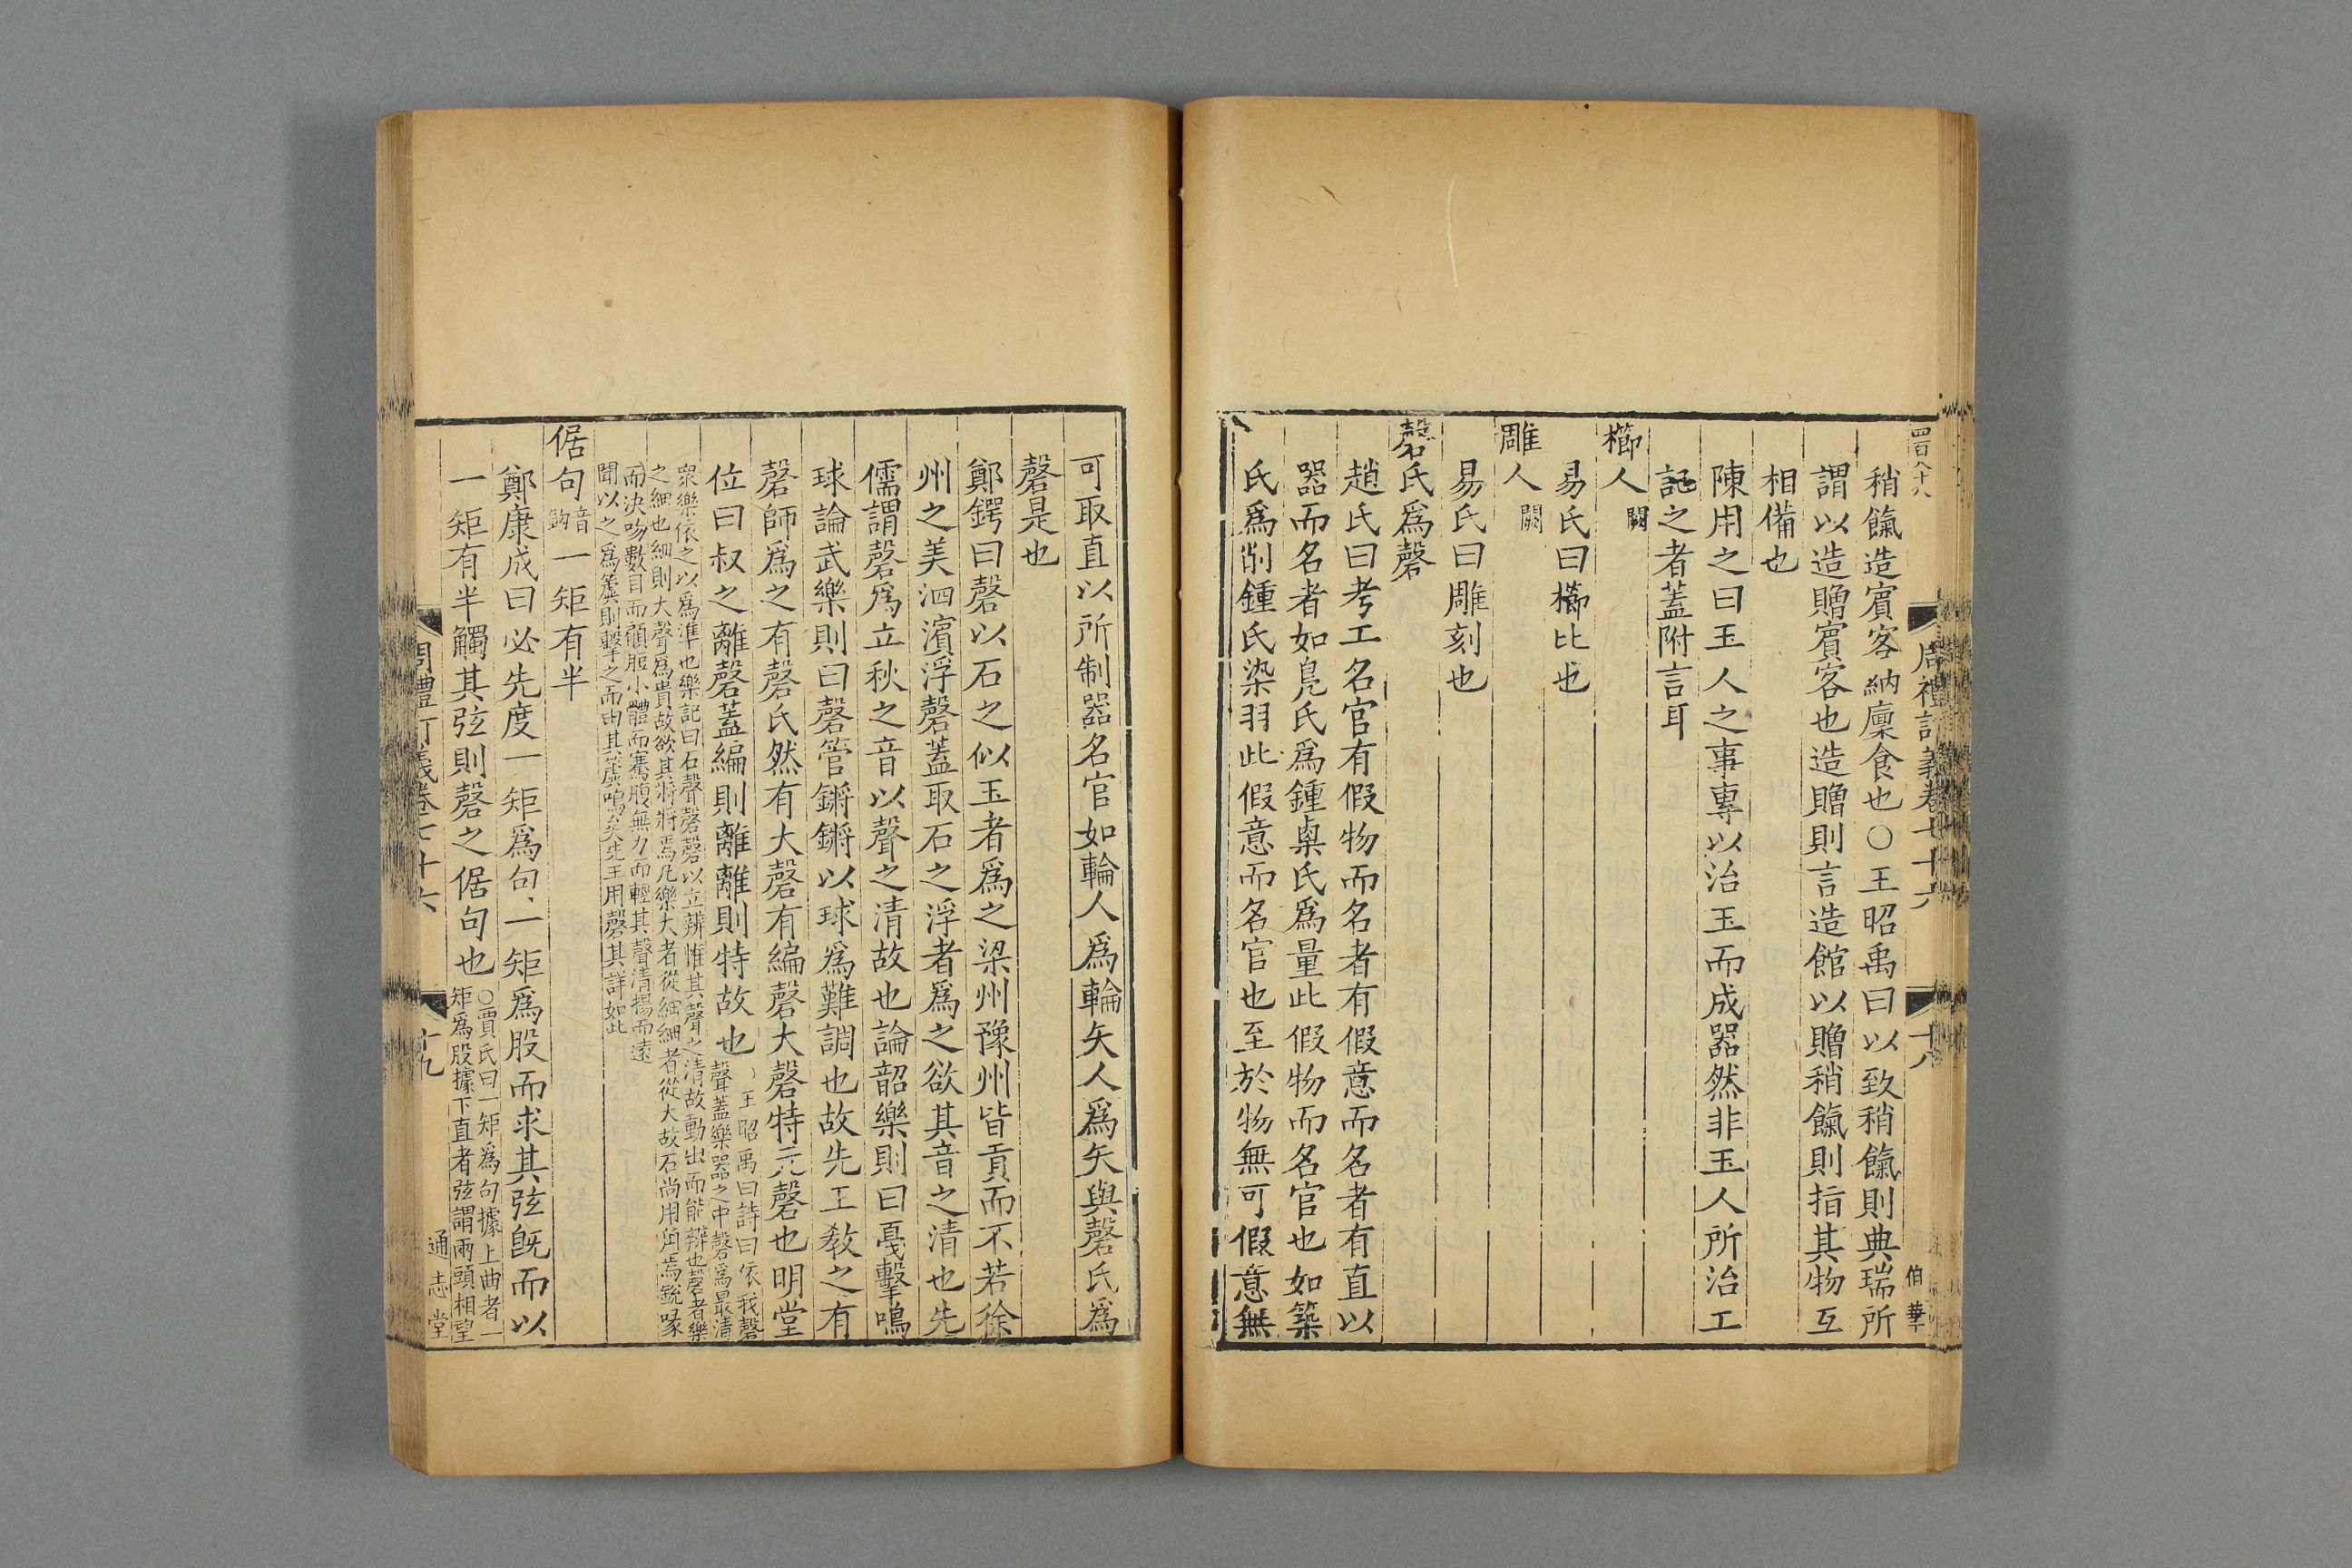 四百八十八
周禮訂義卷七十六
十八
伯華
稍餼造賓客納廩食也○王昭禹曰以致稍餼則典瑞所
謂以造贈賓客也造贈則言造館以贈稍餼則指其物互
相備也
陳用之曰玉人之事專以治玉而成器然非玉人所治工
記之者蓋附言耳
櫛人闕
易氏曰櫛比也
雕人闕
易氏曰雕刻也
磬氏爲磬
趙氏曰考工名官有假物而名者有假意而名者有直以
器而名者如鳧氏爲鍾㮚氏爲量此假物而名官也如築
氏爲削鍾氏染羽此假意而名官也至於物無可假意無
可取直以所制器名官如輪人爲輪矢人爲矢與磬氏爲
磬是也
鄭鍔曰磬以石之似玉者爲之梁州豫州皆貢而不若徐
州之美泗濱浮磬蓋取石之浮者爲之欲其音之清也先
儒謂磬爲立秋之音以聲之清故也論韶樂則曰戛擊鳴
球論武樂則曰磬管鏘鏘以球爲難調也故先王教之有
磬師爲之有磬氏然有大磬有編磬大磬特元磬也明堂
位曰叔之離磬蓋編則離離則特故也○王昭禹曰詩曰依我磬
聲蓋樂器之中磬爲最清
衆樂依之以爲準也樂記曰石聲磬磬以立辨惟其聲之清故動出而能辨也磬者樂
之細也細則大聲爲貴故欲其將將焉凡樂大者從細細者從大故石尚用角焉銳喙
而決吻數目而顧脰小體而騫腹無力而輕其聲清揚而遠
聞以之爲簴則擊之而由其簴鳴矣先王用磬其詳如此
倨句音鉤一矩有半
鄭康成曰必先度一矩爲句一矩爲股而求其弦旣而以
一矩有半觸其弦則磬之倨句也○賈氏曰一矩爲句據上曲者一
矩爲股據下直者弦謂兩頭相望
周禮訂義卷七十六
十九
通志堂